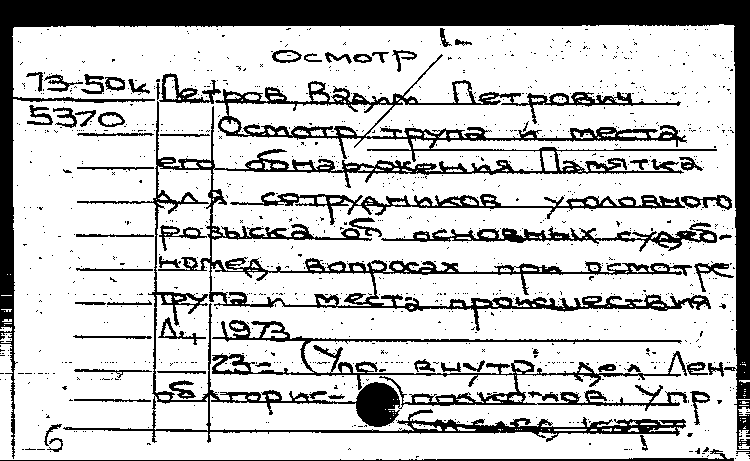 Осмотр
73-50к Петров, Вадим Петрович.
5370 Осмотр трупа и места
его обнаружения. Памятка
для сотрудников уголовного
розыска об основных судеб-
номед. вопросах при осмотре
трупа и места происшествия.
Л., 1973.
23 с. (Упр. внутр. дел Лен-
облгорис- полкомов. Упр.
(См. след. карт.
б